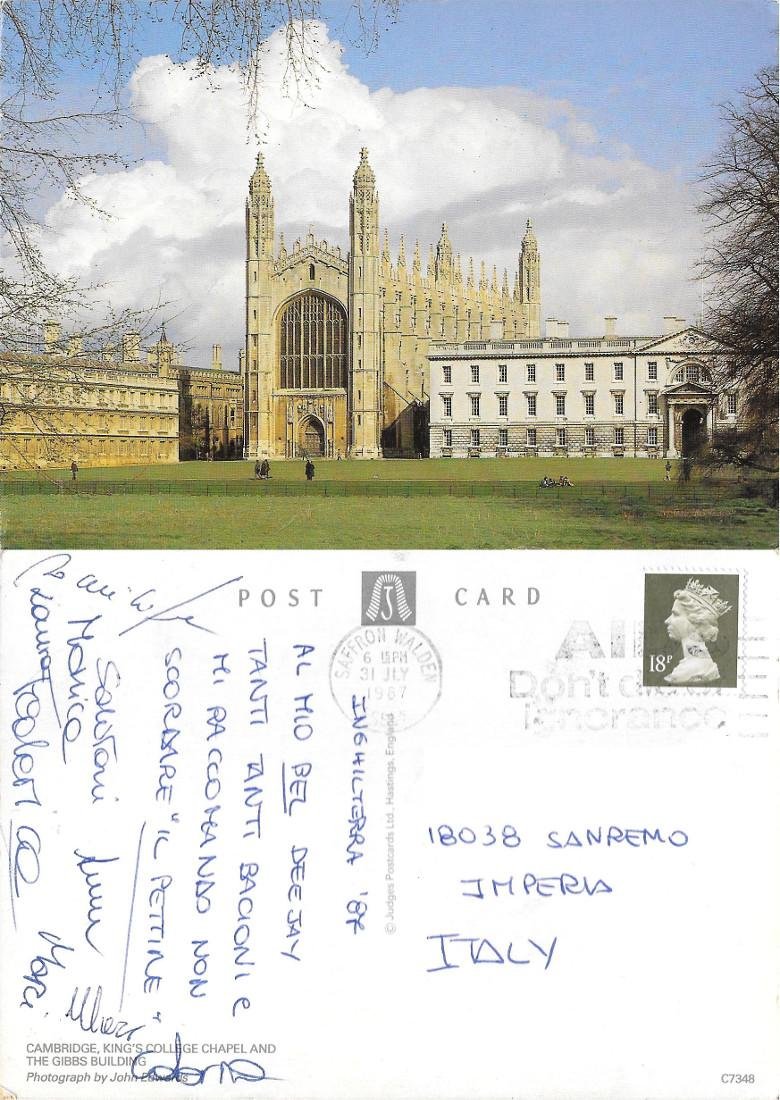 POST CARD
SAFFRON WALDEN
6 15PM
31 JLY
1987
18P
AIDS
Don't die of
ignorance
INGHILTERRA '87
AL MIO BEL DEEJAY
TANTI TANTI BACIONI E
MI RACCOMANDO NON
SCORDARE "IL PETTINE"
Monica
Federica
© Judges Postcards Ltd., Hastings, England
18038 SANREMO
IMPERIA
ITALY
CAMBRIDGE, KING'S COLLEGE CHAPEL AND
THE GIBBS BUILDING
Photograph by John Edwards
C7348